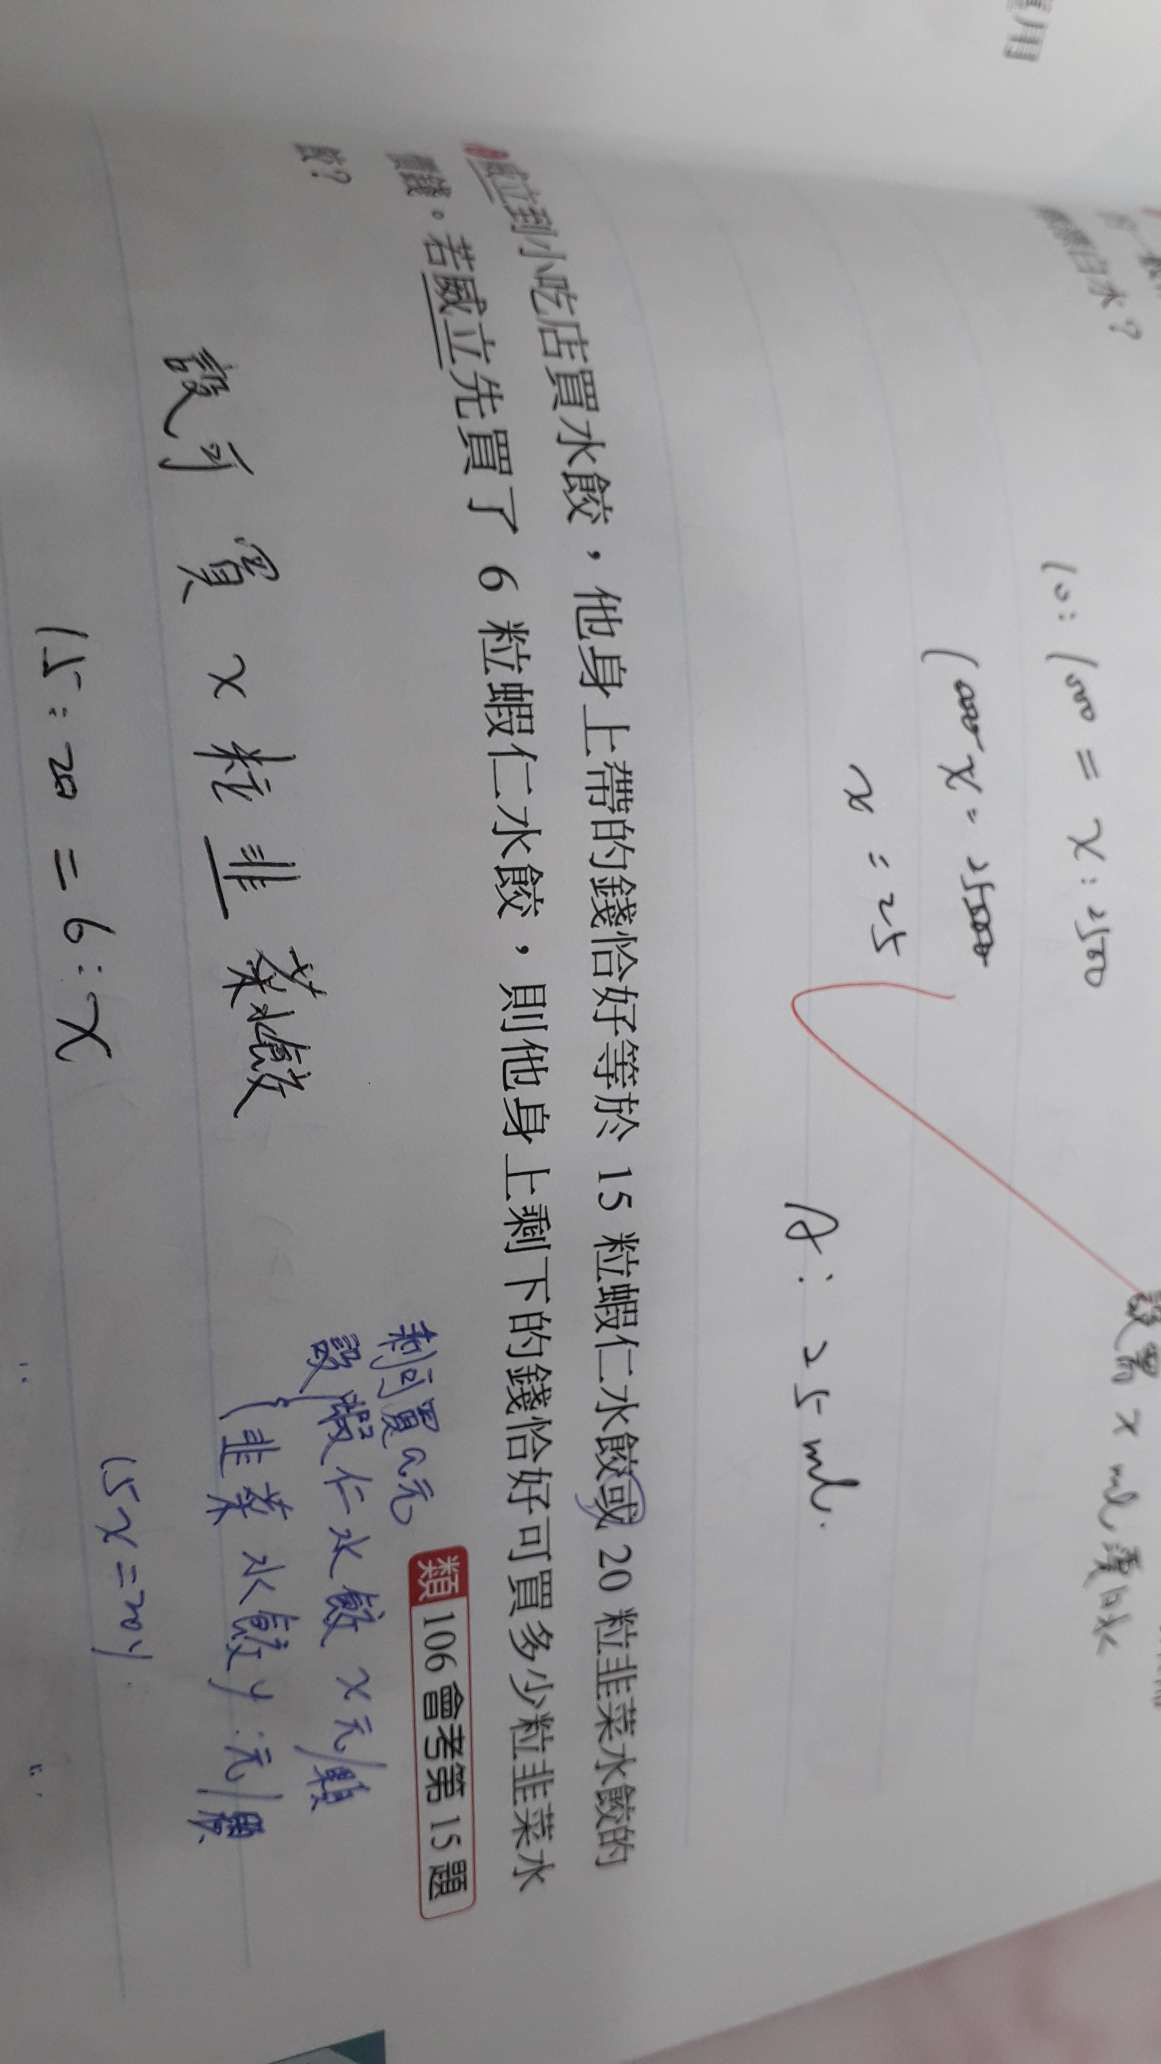 用
漂白水？
設需 x ml 漂白水
10:1000 = x:2500
1000x = 25000
x = 25
A: 25 ml.
威立到小吃店買水餃，他身上帶的錢恰好等於 15 粒蝦仁水餃或 20 粒韭菜水餃的
價錢。若威立先買了 6 粒蝦仁水餃，則他身上剩下的錢恰好可買多少粒韭菜水
餃？
類 106 會考第 15 題
剩可買a元
設 蝦仁水餃 x元/顆
韭菜水餃y:元/顆
設可買 x 粒韭菜水餃
15:20 = 6:x
15x=20y